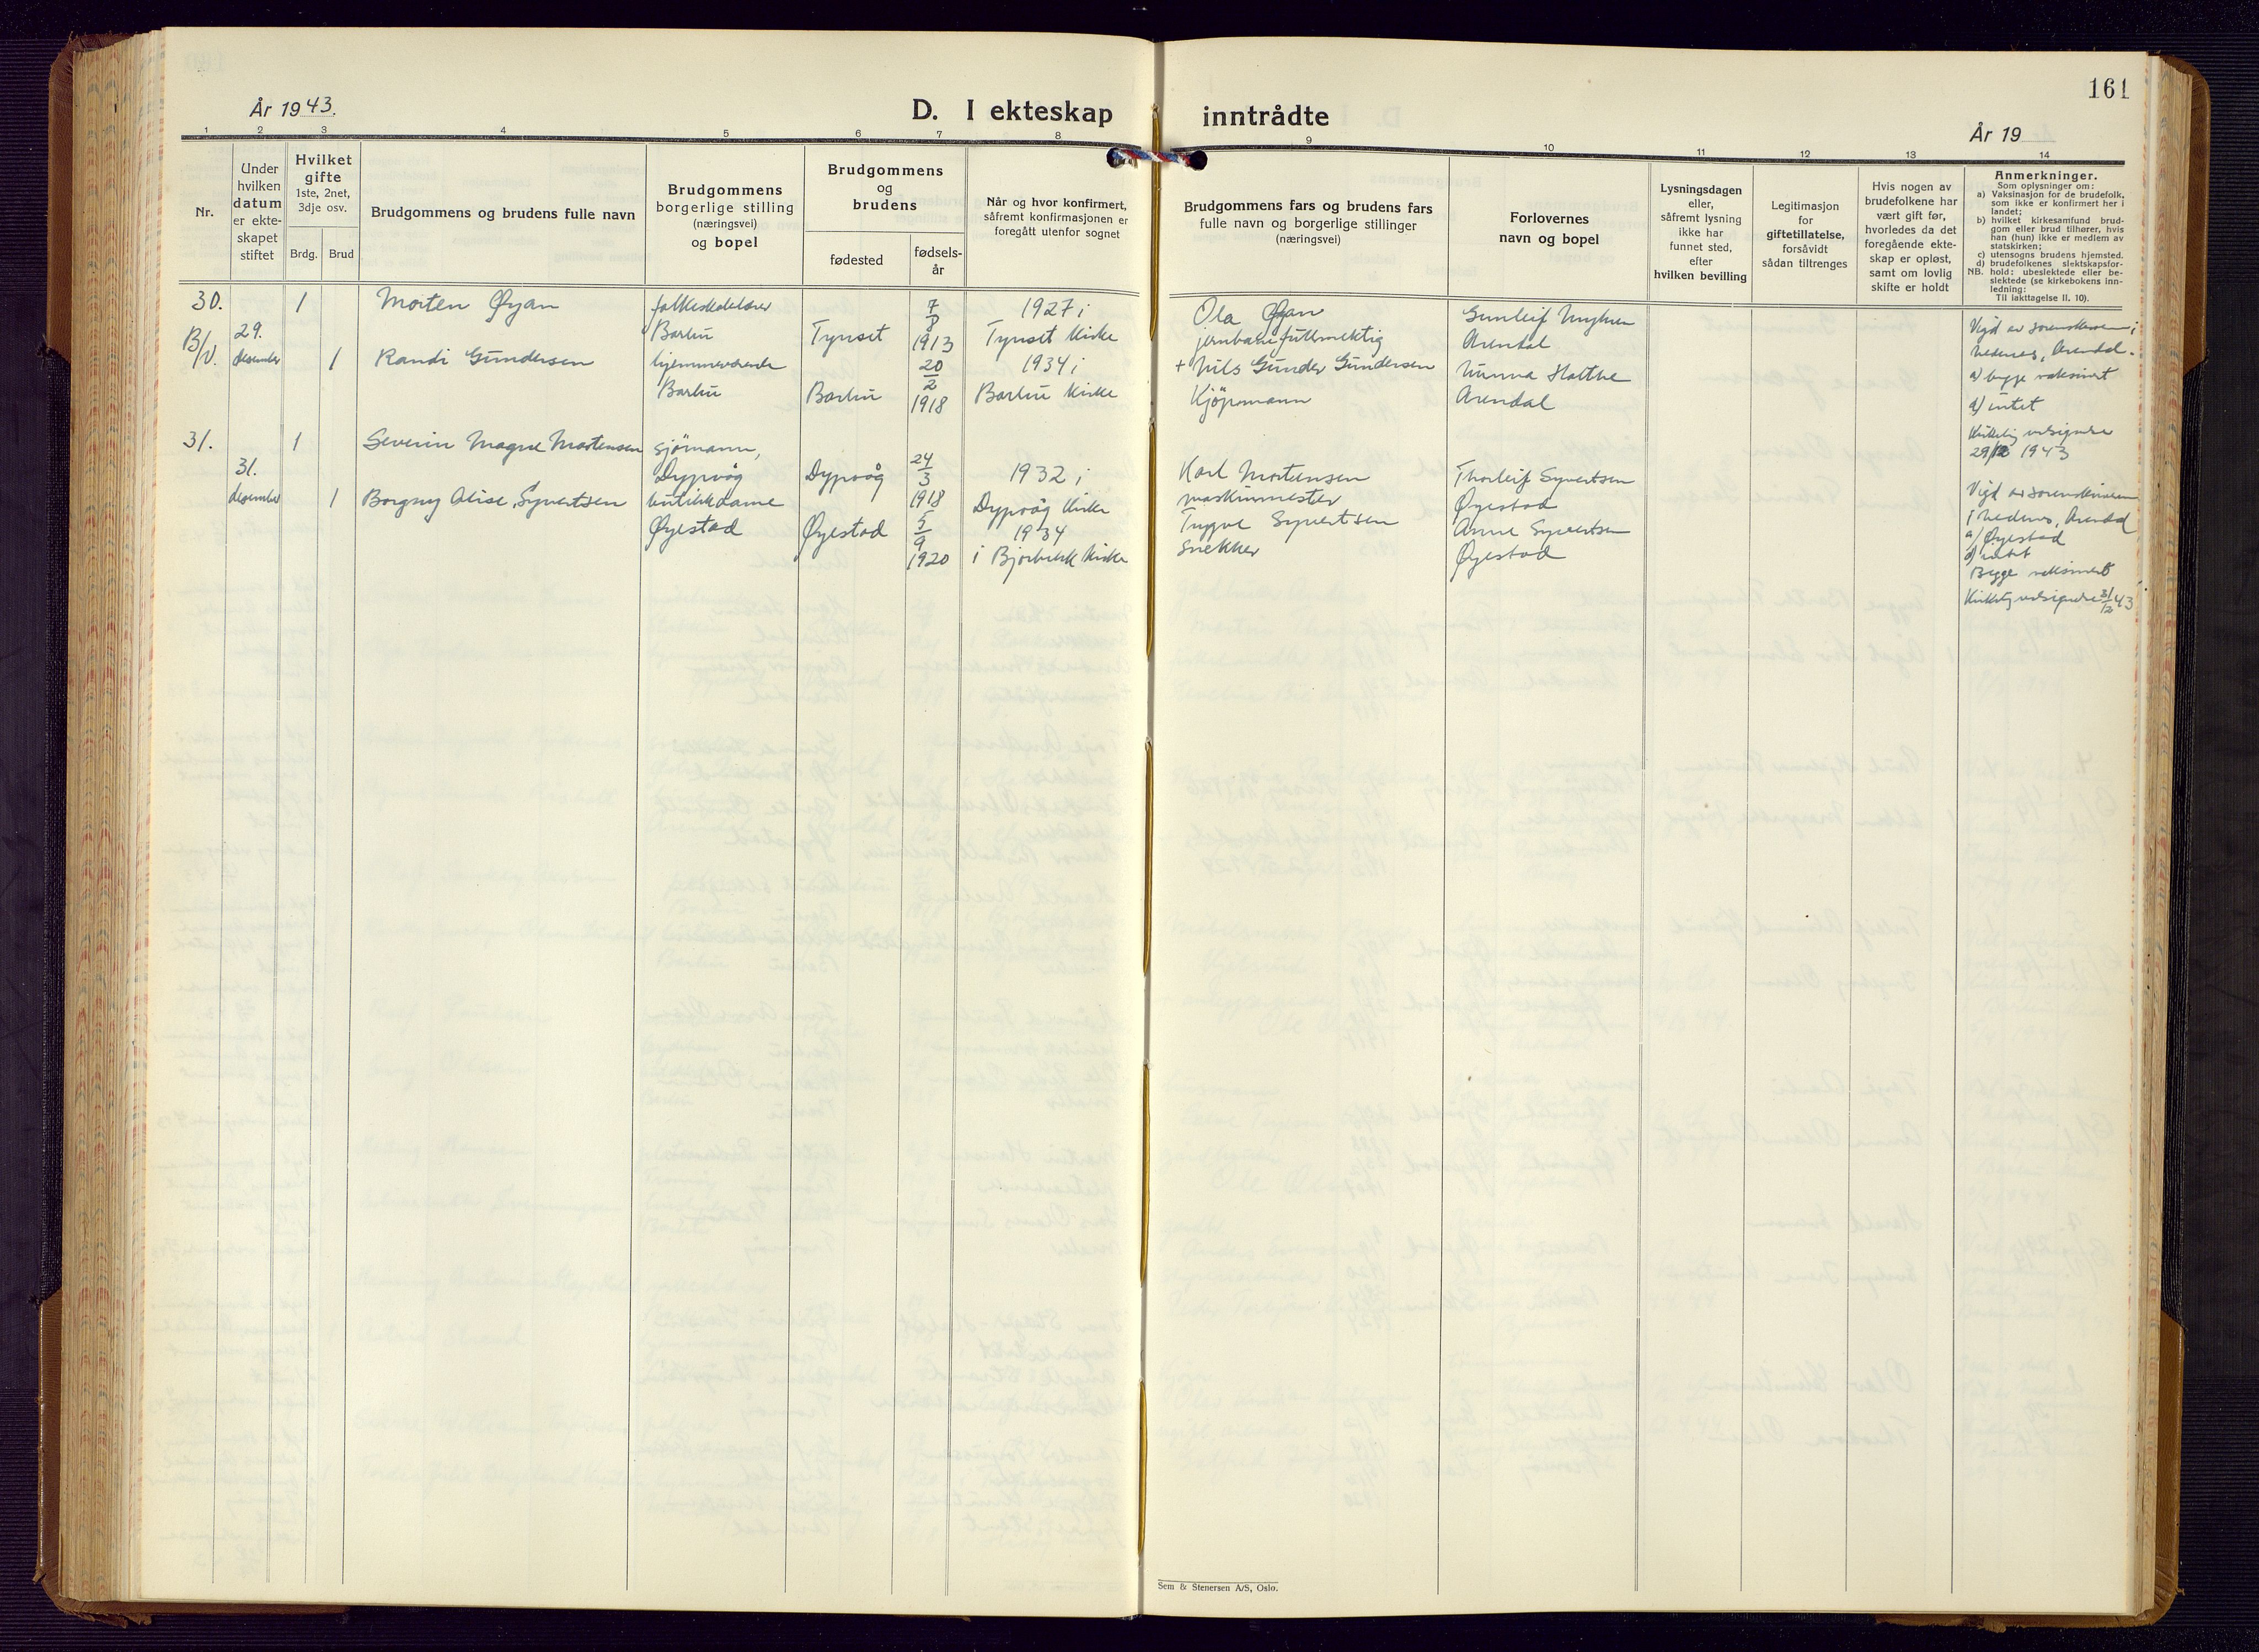 År 1943.
D. I ekteskap inntrådte
161
År 19
1 2 3 4 5 6 7 8 9 10 11 12 13 14
Nr.
Under
hvilken
datum
er ekte-
skapet
stiftet
Hvilket
gifte
1ste, 2net,
3dje osv.
Brdg. Brud
Brudgommens og brudens fulle navn
Brudgommens
borgerlige stilling
(næringsvei)
og bopel
Brudgommens
og
brudens
fødested
fødsels-
år
Når og hvor konfirmert,
såfremt konfirmasjonen er
foregått utenfor sognet
Brudgommens fars og brudens fars
fulle navn og borgerlige stillinger
(næringsvei)
Forlovernes
navn og bopel
Lysningsdagen
eller,
såfremt lysning
ikke har
funnet sted,
efter
hvilken bevilling
Legitimasjon
for
giftetillatelse,
forsåvidt
sådan tiltrenges
Hvis nogen av
brudefolkene har
vært gift før,
hvorledes da det
foregående ekte-
skap er opløst,
samt om lovlig
skifte er holdt
Anmerkninger.
Som oplysninger om:
a) Vaksinasjon for de brudefolk,
som ikke er konfirmert her i
landet;
b) hvilket kirkesamfund brud-
gom eller brud tilhører, hvis
han (hun) ikke er medlem av
statskirken;
c) utensogns brudens hjemsted.
d) brudefolkenes slektskapsfor-
NB. hold: ubeslektede eller be-
slektede (se kirkebokens inn-
ledning:
Til iakttagelse II. 10).
30.
B/V.
29.
desember
1
1
Morten Øyan
Randi Gundersen
Barbu
hjemmeværende
Barbu
Tynset
Barbu
7/8
1913
20/2
1918
1927 i
Tynset Kirke
1934 i
Barbu Kirke
Ola Øyan
jernbanefullmektig
+ Nils Gunder Gundersen
Kjöpmann
Gunleif
Arendal
Arendal
Vigd av sorenskriveren i
Nedenes, Arendal.
a) begge vaksinert
d) intet
Kirkelig velsignelse
29/12 1943
31.
31.
desember
1
1
Severin Magne Mortensen
Borgny Alise Syvertsen
sjömann,
Dypvåg
butikkdame
Øyestad
Dypvåg
Øyestad
24/3
1918
5/9
1920
1932 i
Dypvåg Kirke
1934
i Bjorbekk Kirke
Karl Mortensen
maskinmester
Trygve Syvertsen
snekker
Thorleif Syvertsen
Øyestad
Anne Syvertsen
Øyestad
Vigd av sorenskriveren
i Nedenes, Arendal
Øyestad
d) intet
Begge vaksinert
Kirkelig velsignelse 31/12 43
Sem & Stenersen A/S, Oslo.